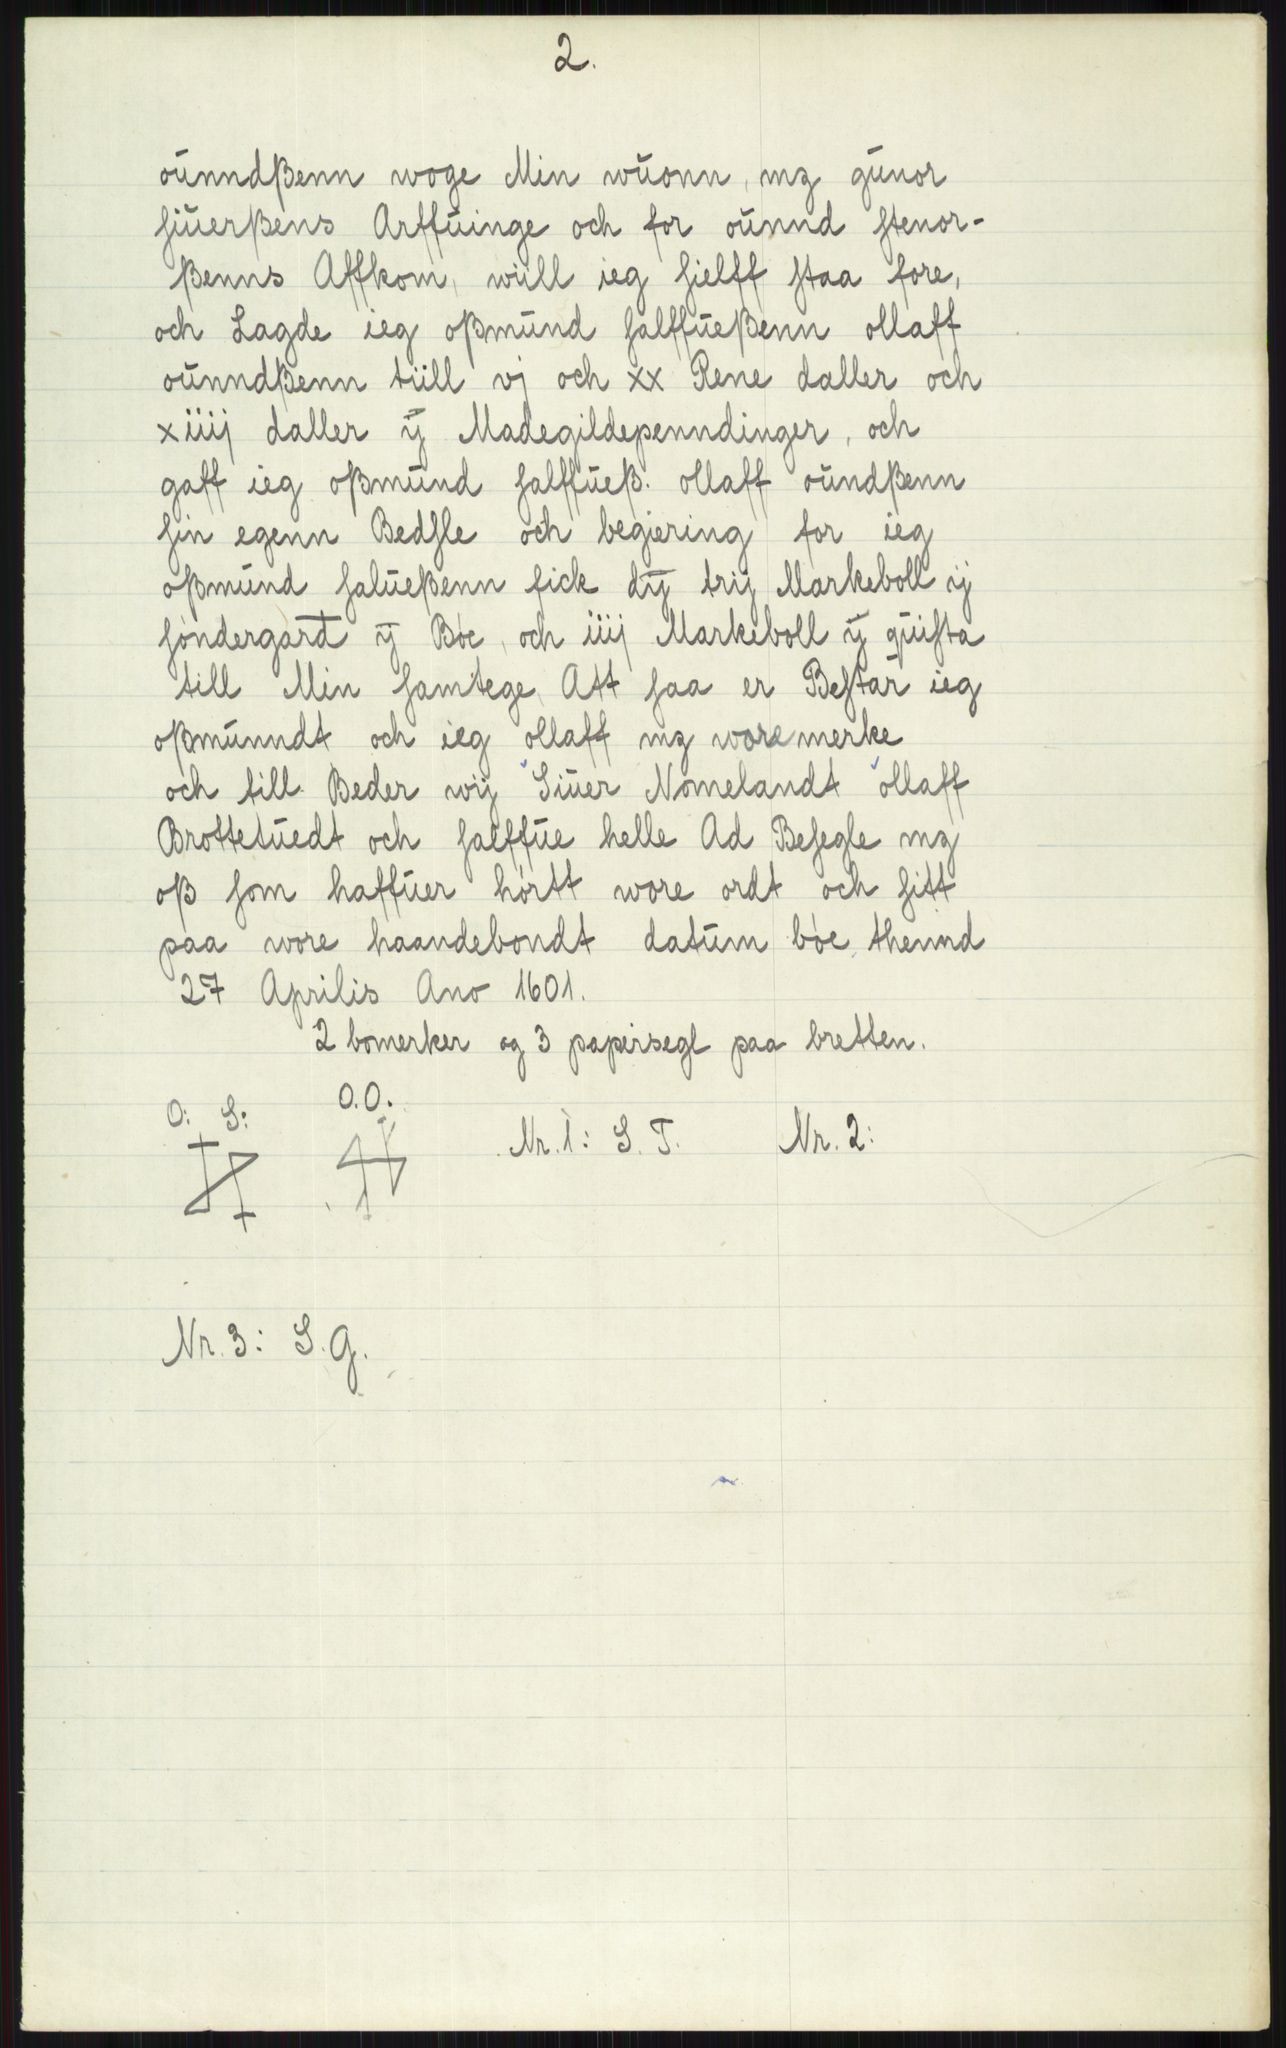 2.
oŭnndßenn woge Min wŭonn, mz gŭnor
siŭerßens Arffŭinge och for oŭnnd stenor-
ßenns Affkom, wiill ieg sielff staa fore,
och Lagde ieg oßmŭnd salffŭeßenn ollaff
oŭnndßenn tiill vj och xx Rene daller och
xiiij daller ÿ Madegildepenndinger, och
gaff ieg oßmŭnd salffŭeß: ollaff oŭndßenn
sin egenn Bedsle och begiering for ieg
oßmŭnd salŭeßenn fick dÿ trij Markeboll ij
søndergard ÿ Bøe, och iiij Markeboll ÿ qŭista
till Min samtege, Att saa er Bestar ieg
oßmŭnndt och ieg ollaff mz wore merke
och till Beder wij Siŭer Nomelandt ollaff
Brottetŭedt och salffŭe helle Ad Besegle mz
oß som haffŭer hørtt wore ordt och sitt
paa wore haandebondt datŭm bøe thennd
27 Aprilis Ano 1601.
2 bomerker og 3 papirsegl paa bretten.
O: S: O.O.
Nr. 1: S. T. Nr. 2:
Nr. 3: S. G.